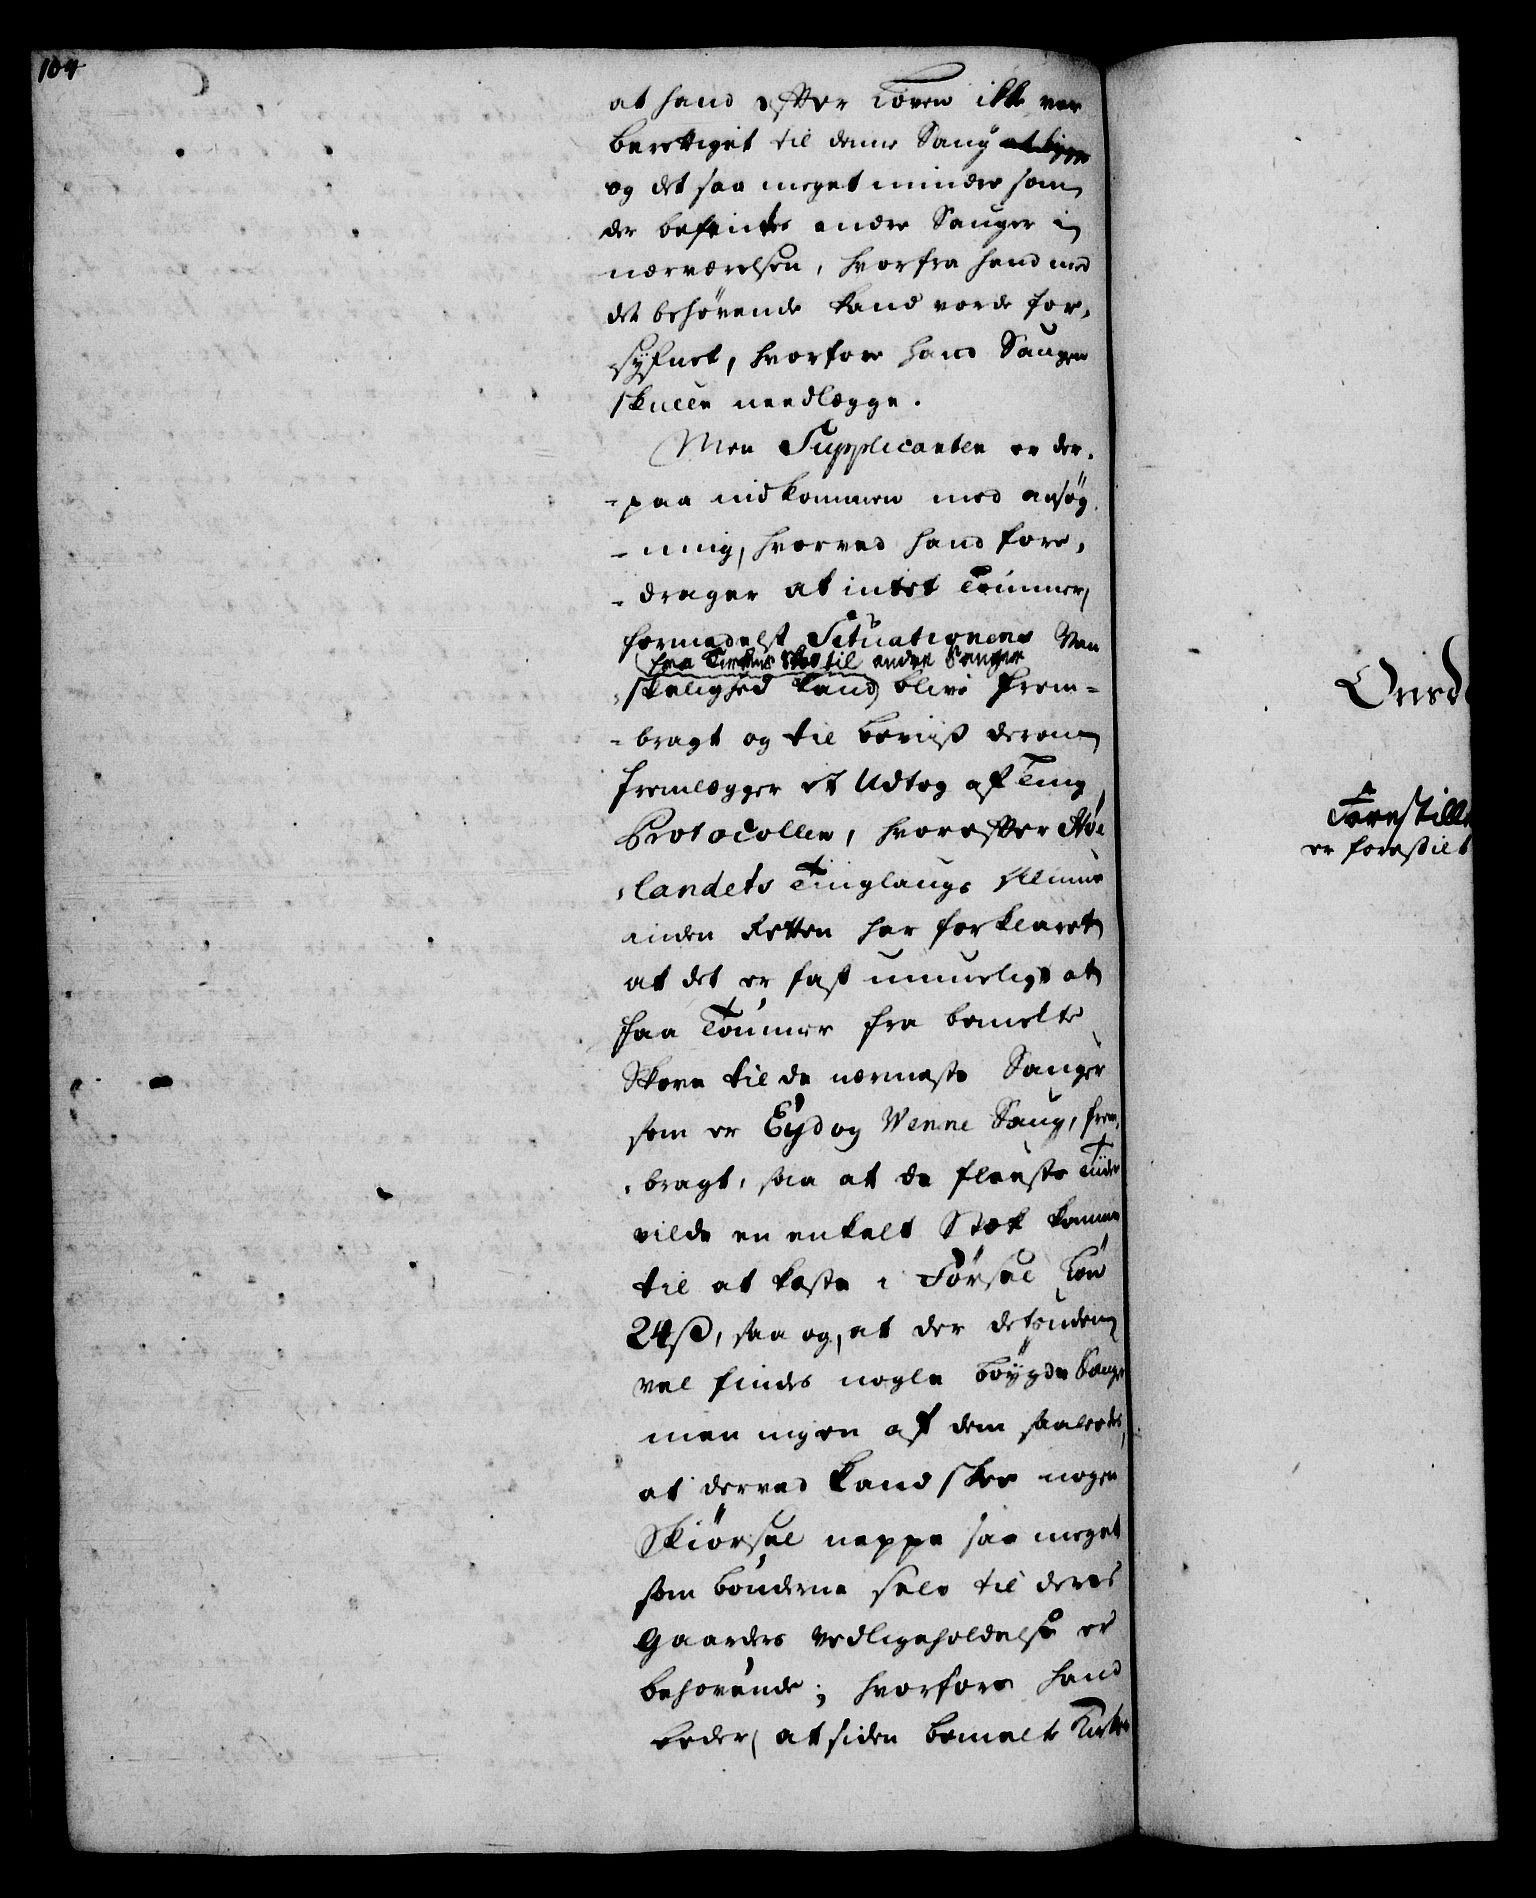 104
at hand efter Loven ikke var
berettiget til denne Saug
og det saa meget mindre som
der befindes andre Sauger i
nærværelsen, hvorfra hand med
det behøvende kand vorde for-
syfnet, hvorfore hand Saugen
skulle nedlægge.
Men Supplicanten er der-
-paa indkommen med ansøg-
-ning, hvorved hand fore-
-drager at intet Tømmer,
formedelst Situationens Van
fra Kirkens Skov til andre Sauger
-skelighed kand blive frem-
-bragt og til beviis derom
fremlægger et Udtog af Ting
Protocollen, hvorefter Høe
-landets Tinglaugs Almue
inden Retten har forklaret
at det er fast umueligt at
faa Tømmer fra bemelte
Skove til de nærmeste Sauger
som er Eyd og Venne Saug, frem-
-bragt, saa at de fleeste Tiider
vilde en enkelt Stok komme
til at koste i Førsel hen
24 ß, saa og, at der desuden
vel findes nogle bøygde Sauge
men ingen af dem saaledes,
at derved kand skee nogen
Skiørsel neppe saa meget
som bønderne selv til deres
Gaarders vedligeholdelse er
behøvende; hvorfore hand
beder, at siden bemelte Kirke
Onsd
Forestill
er forestilt